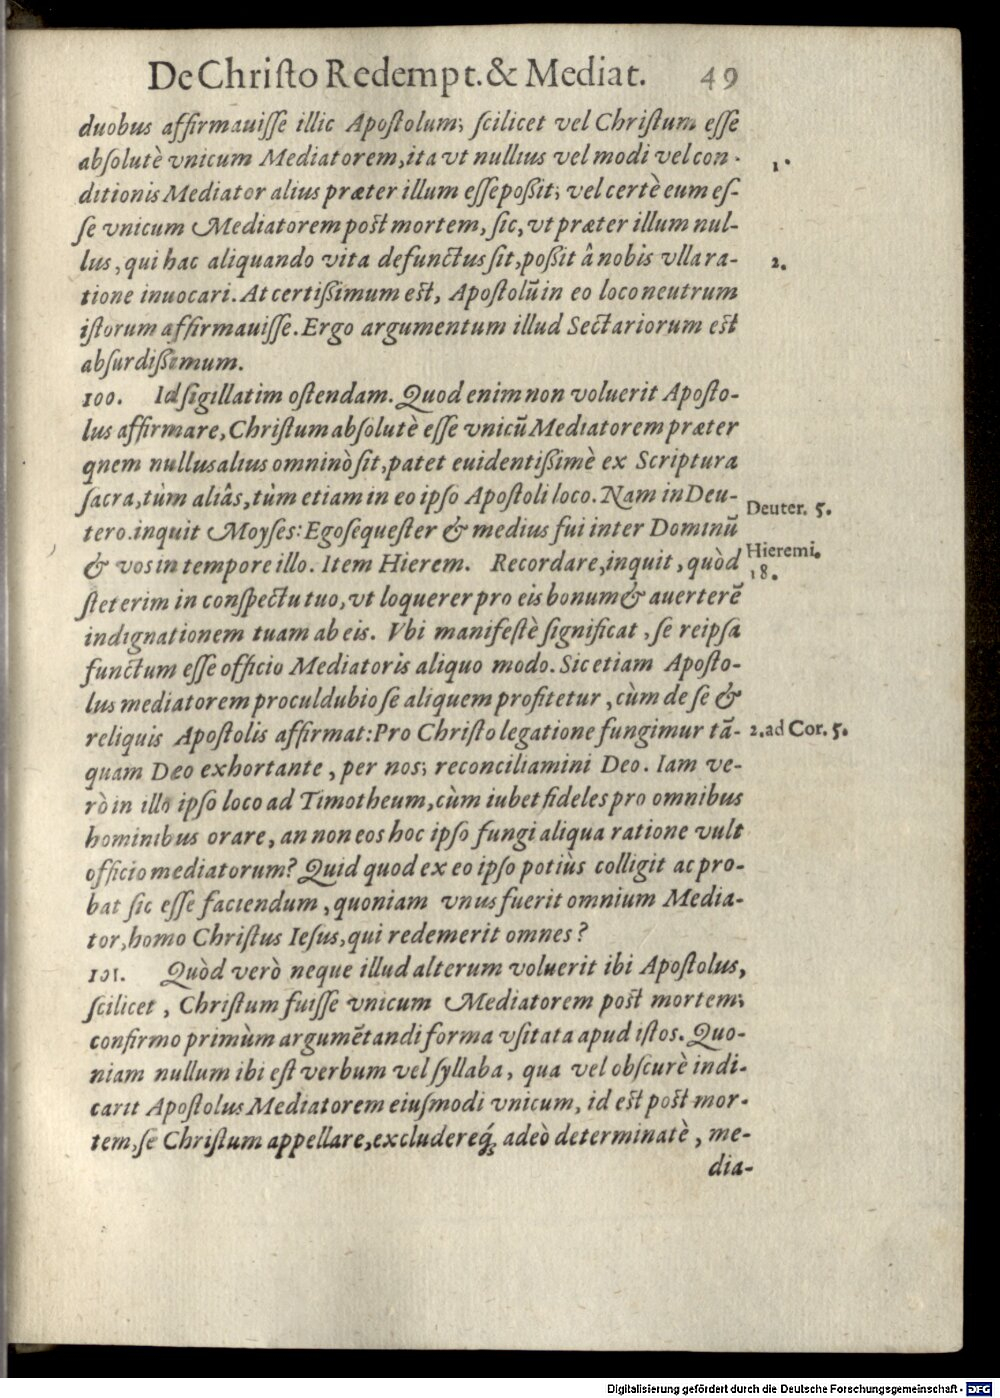 De Christo Redempt. & Mediat. 49
duobus affirmauisse illic Apostolum; scilicet vel Christum esse
absolutè vnicum Mediatorem, ita vt nullius vel modi vel con-
1.
ditionis Mediator alius præter illum esse poßit; vel certè eum es-
se vnicum Mediatorem post mortem, sic, vt præter illum nul-
lus, qui hac aliquando vita defunctus sit, poßit â nobis vlla ra-
2.
tione inuocari. At certißimum est, Apostolũ in eo loco neutrum
istorum affirmauisse. Ergo argumentum illud Sectariorum est
absurdißimum.
100. Id sigillatim ostendam. Quod enim non voluerit Aposto-
lus affirmare, Christum absolutè esse vnicũ Mediatorem præter
qnem nullus alius omninò sit, patet euidentißimè ex Scriptura
sacra, tùm aliâs, tùm etiam in eo ipso Apostoli loco. Nam in Deu-
Deuter. 5.
tero. inquit Moyses: Ego sequester & medius fui inter Dominũ
& vos in tempore illo. Item Hierem. Recordare, inquit, quòd
Hieremi.
18.
steterim in conspectu tuo, vt loquerer pro eis bonum & auerterẽ
indignationem tuam ab eis. Vbi manifestè significat, se reipsa
functum esse officio Mediatoris aliquo modo. Sic etiam Aposto-
lus mediatorem proculdubio se aliquem profitetur, cùm de se &
reliquis Apostolis affirmat: Pro Christo legatione fungimur tã-
2. ad Cor. 5.
quam Deo exhortante, per nos; reconciliamini Deo. Iam ve-
rò in illo ipso loco ad Timotheum, cùm iubet fideles pro omnibus
hominibus orare, an non eos hoc ipso fungi aliqua ratione vult
officio mediatorum? Quid quod ex eo ipso potiùs colligit ac pro-
bat sic esse faciendum, quoniam vnus fuerit omnium Media-
tor, homo Christus Iesus, qui redemerit omnes?
101. Quòd verò neque illud alterum voluerit ibi Apostolus,
scilicet, Christum fuisse vnicum Mediatorem post mortem;
confirmo primùm argumẽtandi forma vsitata apud istos. Quo-
niam nullum ibi est verbum vel syllaba, qua vel obscurè indi-
carit Apostolus Mediatorem eiusmodi vnicum, id est post mor-
tem, se Christum appellare, excludereq́; adeò determinatè, me-
dia-
Digitalisierung gefördert durch die Deutsche Forschungsgemeinschaft - DFG